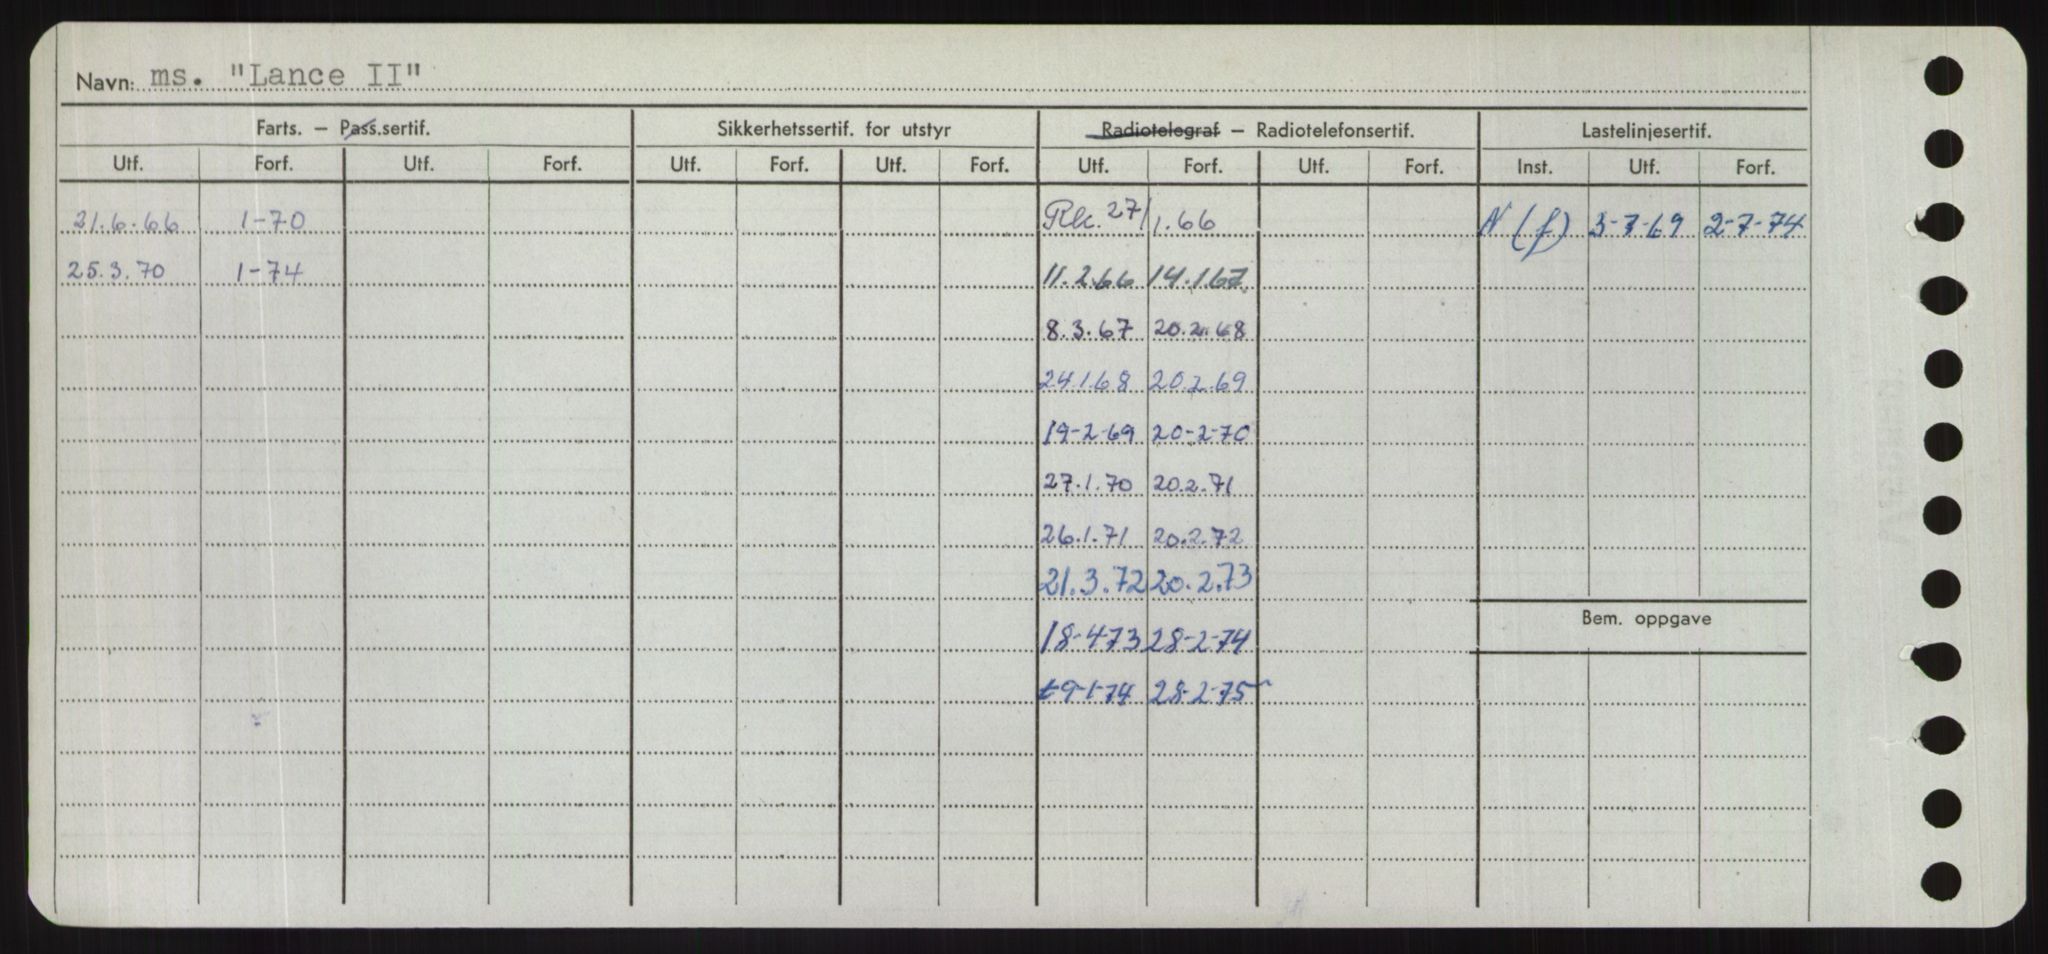 Navn: ms. "Lance II"
Farts. – Pass.sertif. Sikkerhetssertif. for utstyr Radiotelegraf – Radiotelefonsertif. Lastelinjesertif.
Utf. Forf. Utf. Forf. Utf. Forf. Utf. Forf. Utf. Forf. Utf. Forf. Inst. Utf. Forf.
21.6.66 1-70 Rk. 27/1.66 N (f) 3-7-69 2-7-74
25.3.70 1-74 11.2.66 14.1.67.
8.3.67 20.2.68
24.1.68 20.2.69
19-2-69 20-2-70
27.1.70 20.2.71
26.1.71 20.2.72
21.3.72 20.2.73
Bem. oppgave
18-4-73 28-2-74
28-2-75